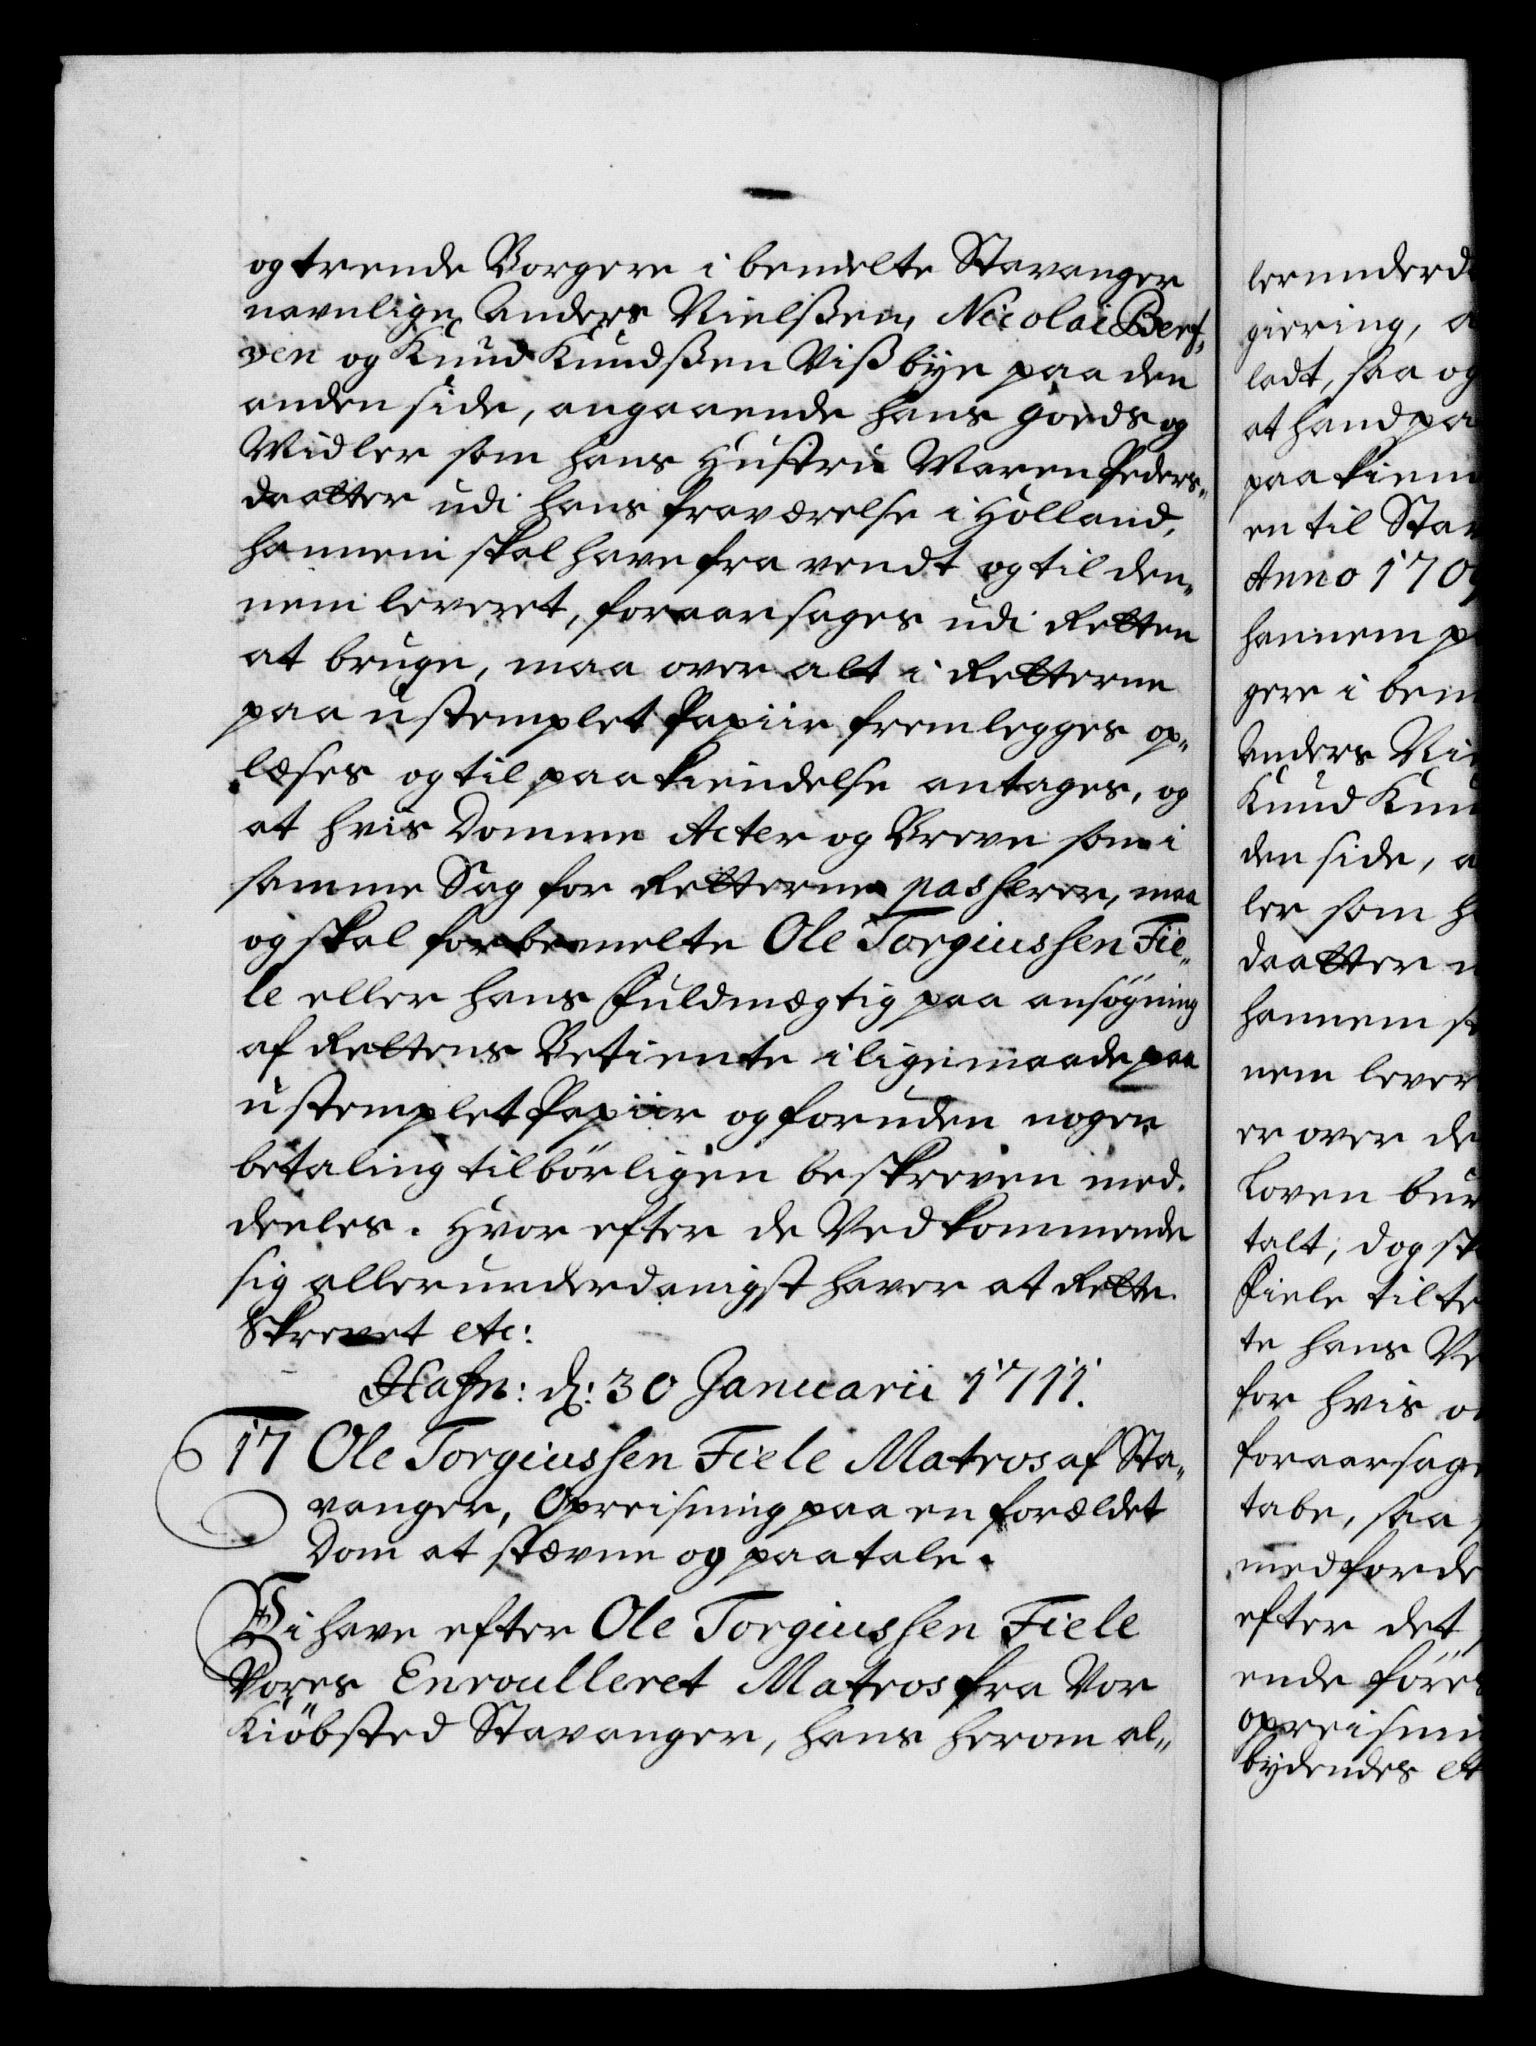 og trende Borgere i bemelte Stavanger
navnlige Anders Nielßen, Nicolai Berf„
ven og Knud Knudßen Wißbye paa den
anden side, angaaende hans Goeds og
Midler som hans Hustrue Maren Peders„
daatter udi hans fraværelse i Holland,
hannem skal have fra vendt og til den„
nem leveret, foraarsages udi Retten
at bruge, maa over alt i Retterne
paa ustemplet Papiir fremlegges op„
læses og til paakiendelse antages, og
at hvis Domme Acter og Breve som i
samme Sag for Retterne passerer, maa
og skal forbemelte Ole Torgiussen Fie„
le eller hans Fuldmægtig paa ansøgning
af Rettens Betiente i lige maade paa
ustemplet Papiir og foruden nogen
betaling tilbörligen beskreven med.
deeles. Hvor efter de Vedkommende
sig allerunderdanigst haver at Rette.
Skrevet etc:
Hafn: d: 30 Januarii 1711.
17 Ole Torgiussen Fiele Matros af Sta„
vanger, Opreisning paa en forældet
Dom at stævne og paatale.
Vi have efter Ole Torgiussen Fiele
Vores Enroulleret Matros fra Vor
Kiöbsted Stavanger, hans herom al„
lerunderd
giering, a
ladt, saa og
at hand pa
paakiem
en til Stav
Anno 1709
hannem p
gere i bem
Anders Nie
Knud Knu
den side, a
ler som h
daatter u
hannem sk
nem lever
er over de
Loven bur
talt, dog sk
Fiele til te
te hans Ve
for hvis o
foraarsage
tabe, saa
med forde
efter det
ende föres
opreisnin
bydendes et